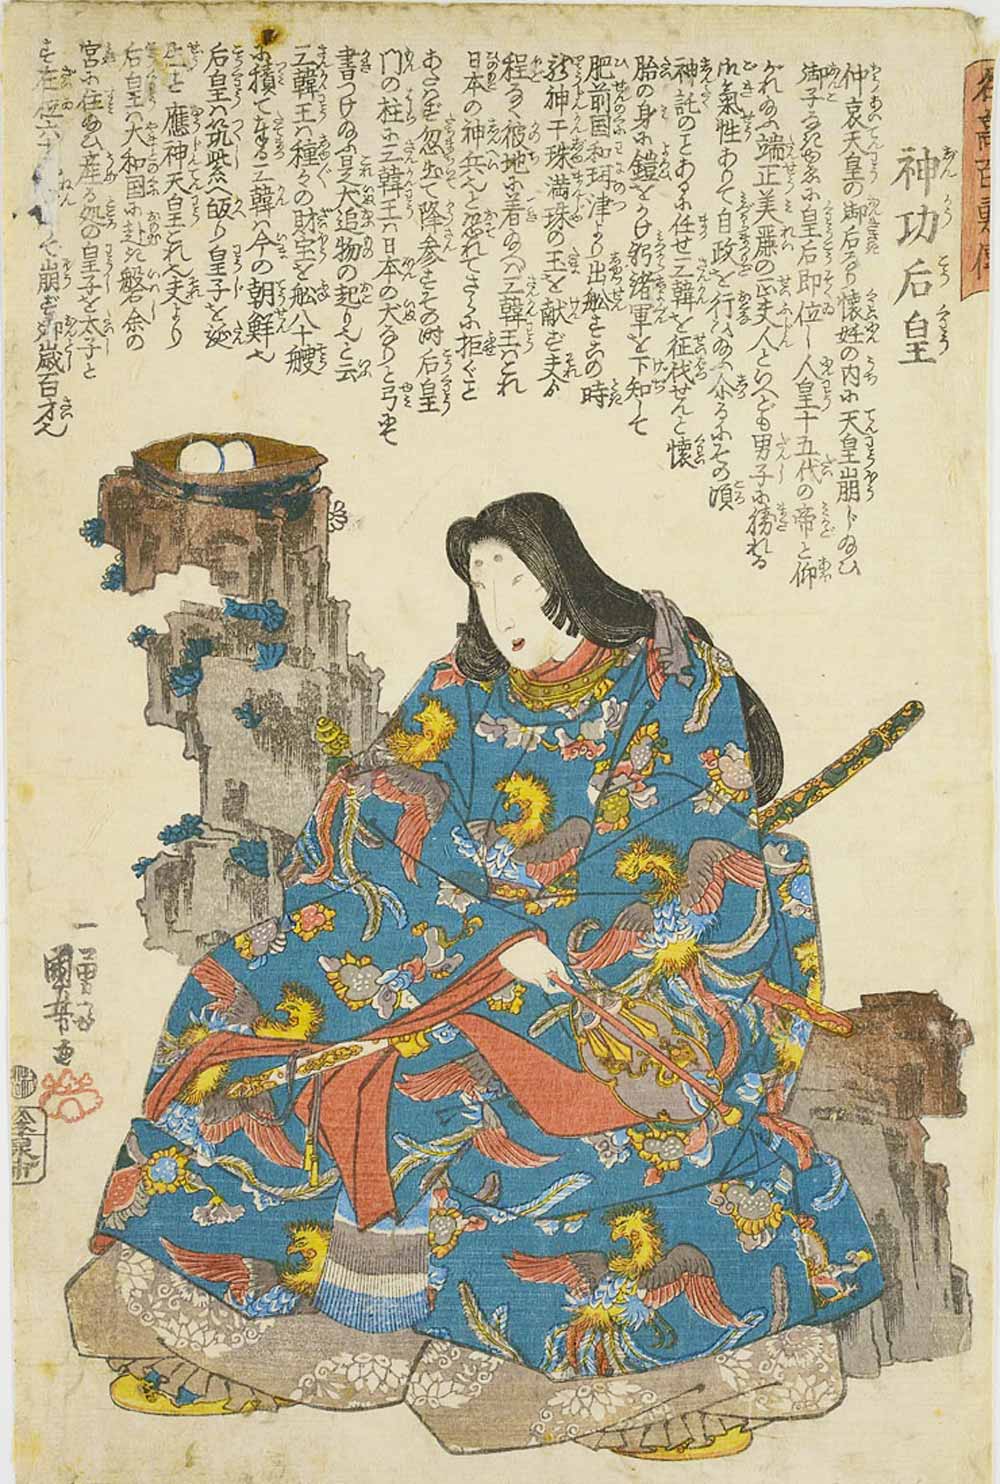 名高百勇傳
神功后皇
仲哀天皇の御后なり懐妊の内に天皇崩じ玉ひ
御子なき故に皇后即位し人皇十五代の帝と仰
がれ玉ふ端正美麗の正夫人といへども男子に勝れる
御氣性ありて自政を行ひ玉ふ
神託のことあるに任せ三韓を征伐せんと懐
胎の身に鎧をかけ躬諸軍を下知して
肥前国和珥津より出舩す此時
神干珠満珠の玉を献ず夫か
程なく彼地に着玉へば三韓王これ
日本の神兵也と恐れてさらに拒ぐこと
あたはず忽出て降参す其の時后皇
門の柱に三韓王ハ日本の犬なりと弓にて
書つけ玉ふ是犬追物の起り也と云
三韓王ハ種々の財宝を舩八十艘
に積て奉る三韓ハ今の朝鮮也
后皇ハ筑紫へ皈り皇子を誕
生す應神天皇これ也夫より
后皇ハ大和国に赴き磐余の
宮に住玉ひ産る処の皇子を太子と
す在位六十
崩ず御歳百才也
一勇斎
國芳画
泉市